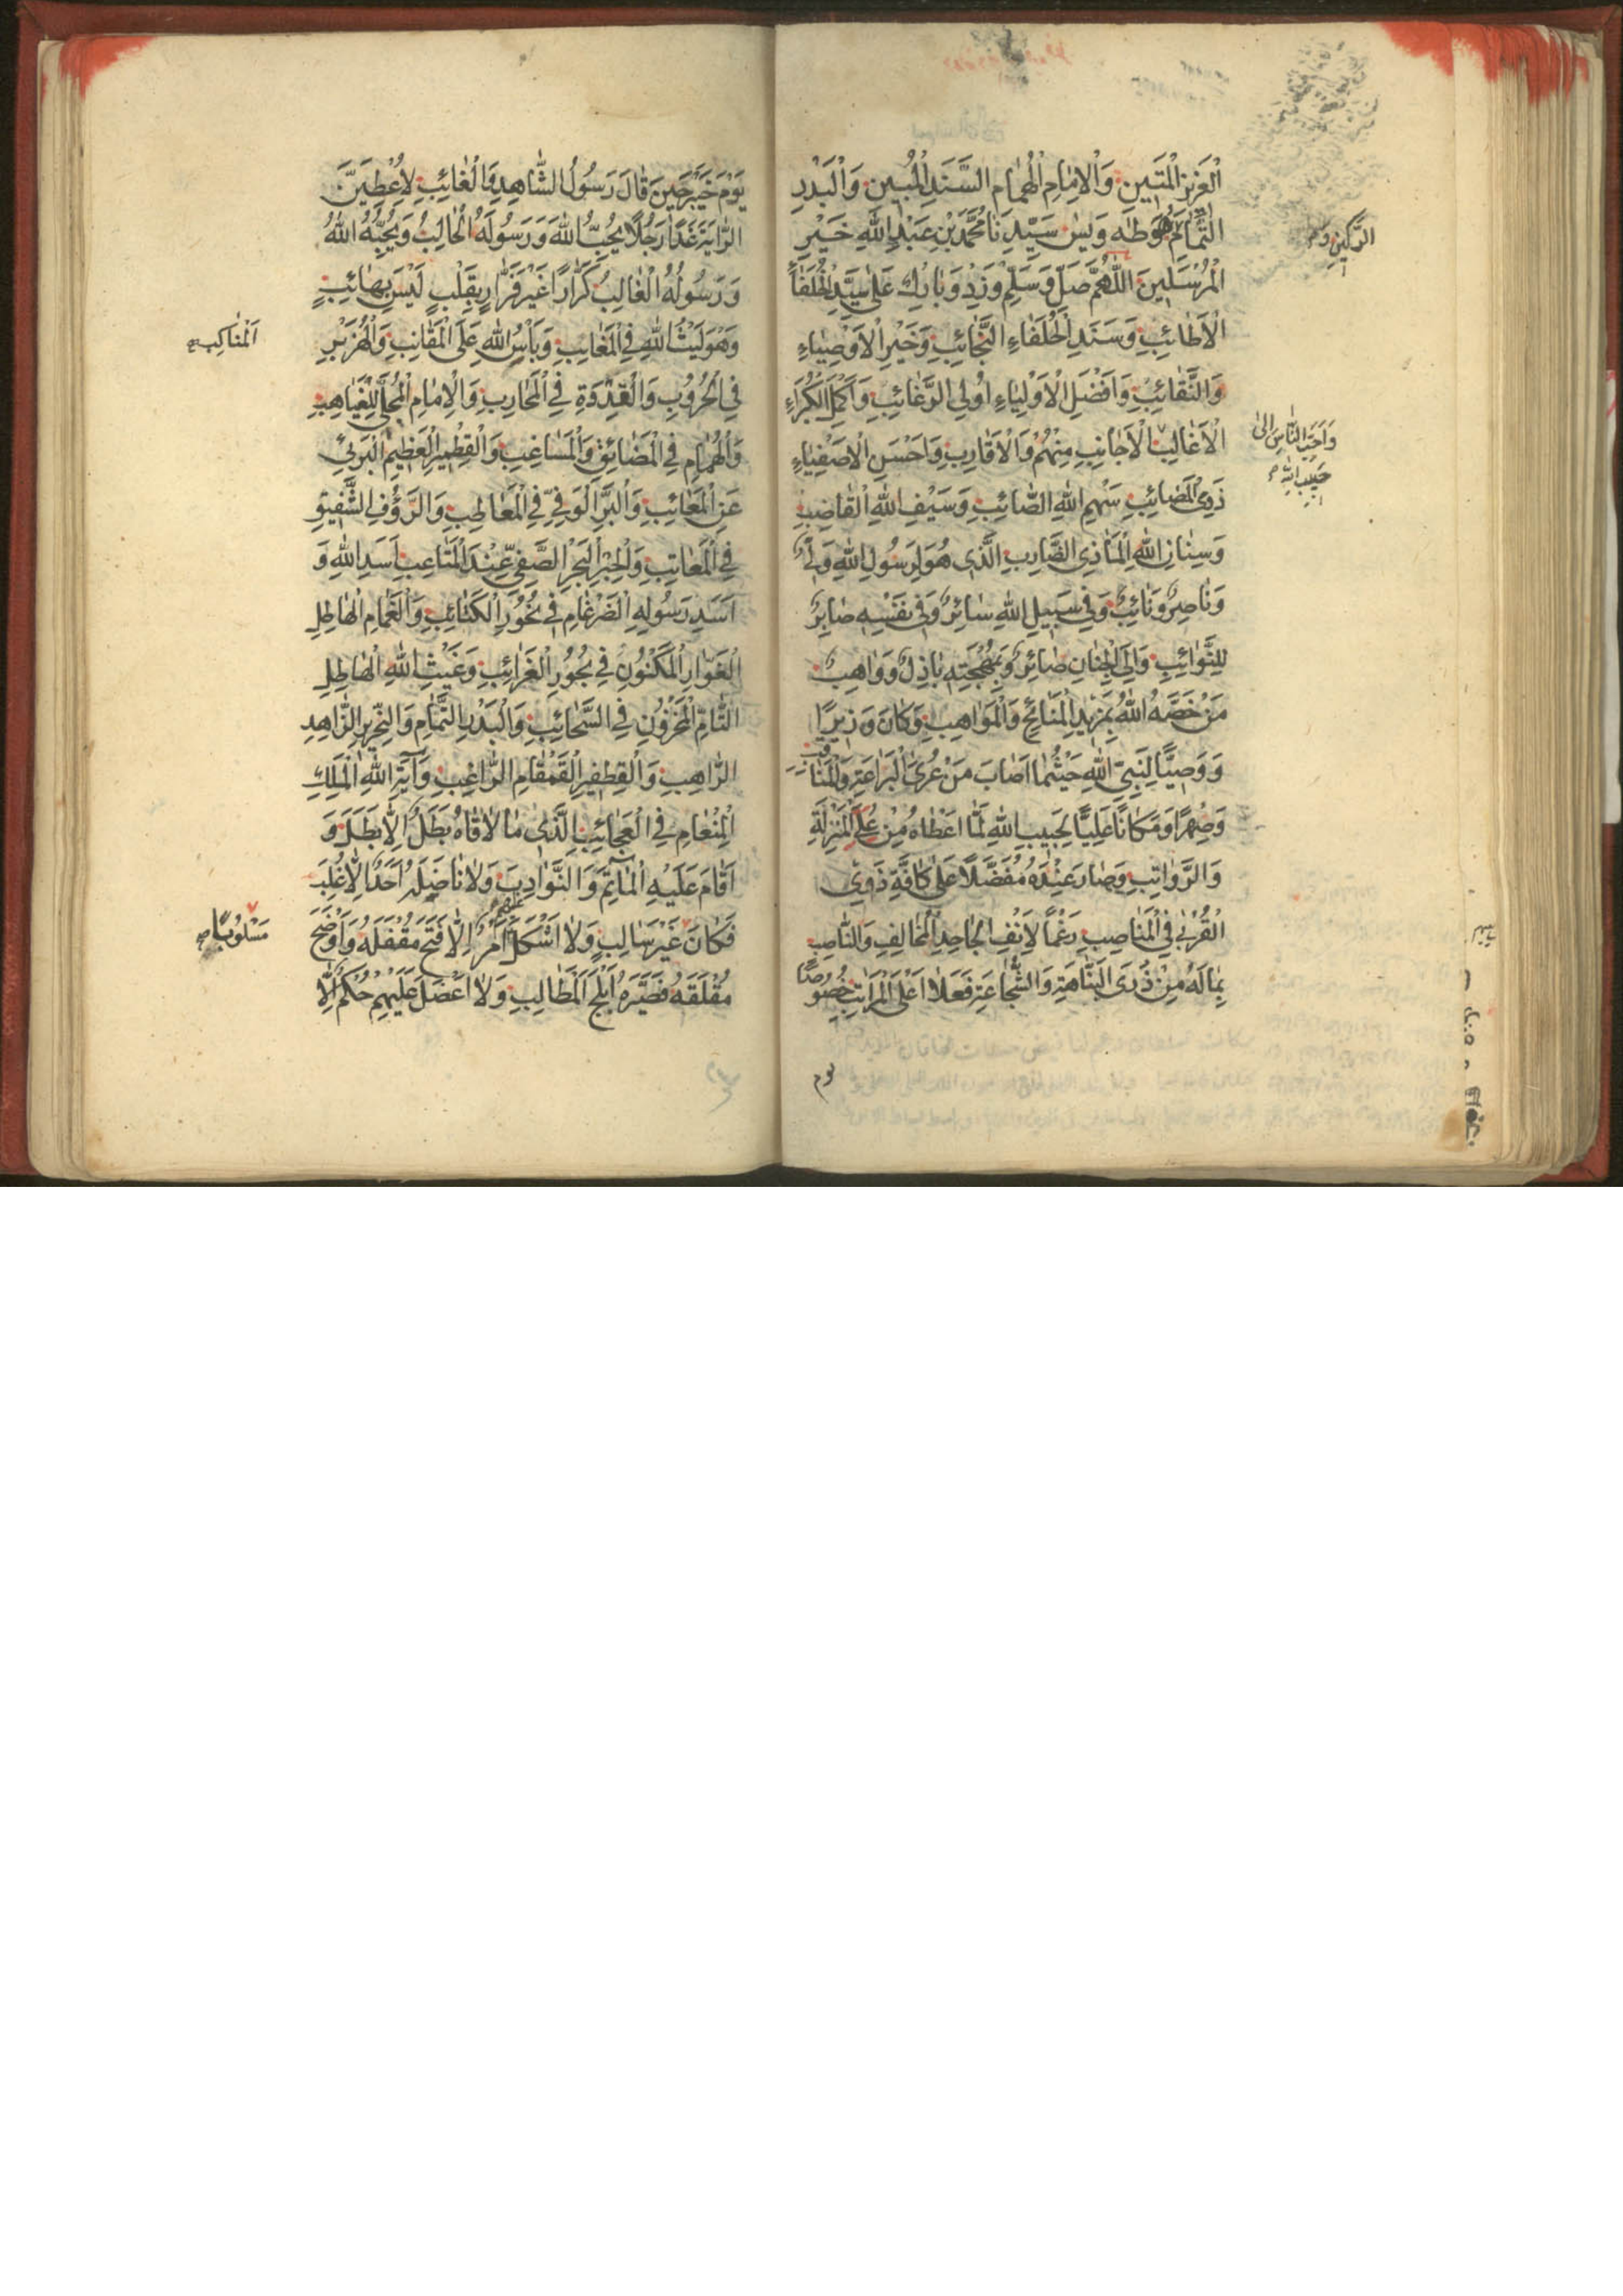 الْعَزِيزِ الْمَتِينِ وَالْاِمَامِ الْهُمَامِ السَّنَدِ الْمُبِينِ وَالْبَدْرِ
التَّمَامِ طٰهٰ وَيٰسٓ سَيِّدِنَا مُحَمَّدِ بْنِ عَبْدِ اللّٰهِ خَيْرِ
الْمُرْسَلِينَ اَللّٰهُمَّ صَلِّ وَسَلِّمْ وَزِدْ وَبَارِكْ عَلٰى سَيِّدِ الْخُلَفَاءِ
الْاَطَائِبِ وَسَنَدِ الْخُلَفَاءِ النَّجَائِبِ وَخَيْرِ الْاَوْصِيَاءِ
وَالنَّقَائِبِ وَاَفْضَلِ الْاَوْلِيَاءِ اُولِي الرَّغَائِبِ وَاَكْمَلِ الْكُبَرَاءِ
الْاَغَالِبِ الْاَجَانِبِ مِنْهُمْ وَالْاَقَارِبِ وَاَحْسَنِ الْاَصْفِيَاءِ
ذَوِي الْمَصَائِبِ سَهْمِ اللّٰهِ الصَّائِبِ وَسَيْفِ اللّٰهِ الْقَاضِبِ
وَسِنَانِ اللّٰهِ الْمَاذِي الضَّارِبِ الَّذِي هُوَ لِرَسُولِ اللّٰهِ وَلِيٌّ
وَنَاصِرٌ وَنَائِبٌ وَفِي سَبِيلِ اللّٰهِ سَائِرٌ وَفِي نَفْسِهِ صَابِرٌ
لِلنَّوَائِبِ وَاِلَى الْجِنَانِ صَائِرٌ وَبِمُهْجَتِهِ بَاذِلٌ وَوَاهِبٌ
مَنْ خَصَّهُ اللّٰهُ بِمَزِيدِ الْمَنَائِحِ وَالْمَوَاهِبِ وَكَانَ وَزِيرًا
وَوَصِيًّا لِنَبِيِّ اللّٰهِ حَيْثُمَا اَصَابَ مِنْ عُرَى الْبَرَاعَةِ وَالْمَنَاقِبِ
وَصِهْرًا وَمَكَانًا عَلِيًّا لِحَبِيبِ اللّٰهِ لَمَّا اَعْطَاهُ مِنْ عُلَى الْمَنْزِلَةِ
وَالرَّوَاتِبِ وَصَارَ عِنْدَهُ مُفَضَّلًا عَلٰى كَافَّةِ ذَوِي
الْقُرْبٰى فِي الْمَنَاصِبِ رَغْمًا لِاَنْفِ الْجَاحِدِ الْمُخَالِفِ وَالنَّاصِبِ
بِمَا لَهُ مِنْ ذُرَى النَّبَاهَةِ وَالشَّجَاعَةِ فَعَلَا اَعْلَى الْمَرَاتِبِ خُصُوصًا
يوم
الرَّكِينِ
وَاَحَبِّ النَّاسِ اِلٰى
حَبِيبِ اللّٰهِ
يَوْمَ خَيْبَرَ حِينَ قَالَ رَسُولُ الشَّاهِدِ وَالْغَائِبِ لَاُعْطِيَنَّ
الرَّايَةَ غَدًا رَجُلًا يُحِبُّ اللّٰهَ وَرَسُولَهُ الْحَالِبُ وَيُحِبُّهُ اللّٰهُ
وَرَسُولُهُ الْغَالِبُ كَرَّارًا غَيْرَ فَرَّارٍ بِقَلْبٍ لَيْسَ بِهَائِبٍ
وَهُوَ لَيْثُ اللّٰهِ فِي الْمَغَايِبِ وَبَأْسُ اللّٰهِ عَلَى الْمَقَانِبِ وَالْهِزَبْرِ
فِي الْحُرُوبِ وَالْقُدْوَةِ فِي الْمَحَارِبِ وَالْاِمَامِ الْمُجَلِّي لِلْغَيَاهِبِ
وَالْهُمَامِ فِي الْمَضَائِقِ وَالْمَسَاغِبِ وَالْقِطْمِيرِ الْعَظِيمِ الْبَرِيِّ
عَنِ الْمَعَائِبِ وَالْبَرِّ الْوَفِيِّ فِي الْمَعَاطِبِ وَالرَّؤُفِ الشَّفِيقِ
فِي الْمَعَاتِبِ وَالْحِبْرِ الْبَحْرِ الصَّفِيِّ عِنْدَ الْمَتَاعِبِ اَسَدِ اللّٰهِ وَ
اَسَدِ رَسُولِهِ الضَّرْغَامِ فِي نُحُورِ الْكَتَائِبِ وَالْغَمَامِ الْهَاطِلِ
الْمَكْنُونِ فِي بُحُورِ الْغَرَائِبِ وَغَيْثِ اللّٰهِ الْهَاطِلِ
التَّامِّ الْمَخْزُونِ فِي السَّحَائِبِ وَالْبَدْرِ التَّمَامِ وَالنِّحْرِيرِ الزَّاهِدِ
الرَّاهِبِ وَالْقِطْفِيرِ الْقَمْقَامِ الرَّاغِبِ وَاٰيَةِ اللّٰهِ الْمَلِكِ
الْمِنْعَامِ فِي الْعَجَائِبِ الَّذِي مَا لَاقَاهُ بَطَلٌ اِلَّا بَطَلَ وَ
اَقَامَ عَلَيْهِ الْمَاٰتِمَ وَالنَّوَادِبَ وَلَا نَاضَلَهُ اَحَدٌ اِلَّا غُلِبَ
فَكَانَ غَيْرَ سَالِبٍ وَلَا اَشْكَلَ عَلَيْهِمْ اَمْرٌ اِلَّا فَتَحَ مُقْفَلَهُ وَاَوْضَحَ
مُغْلَقَهُ فَصَيَّرَهُ اَبْلَجَ الْمَطَالِبِ وَلَا اَعْضَلَ عَلَيْهِمْ حُكْمٌ اِلَّا
اَلْمَنَاكِبِ
مَسْلُوبًا